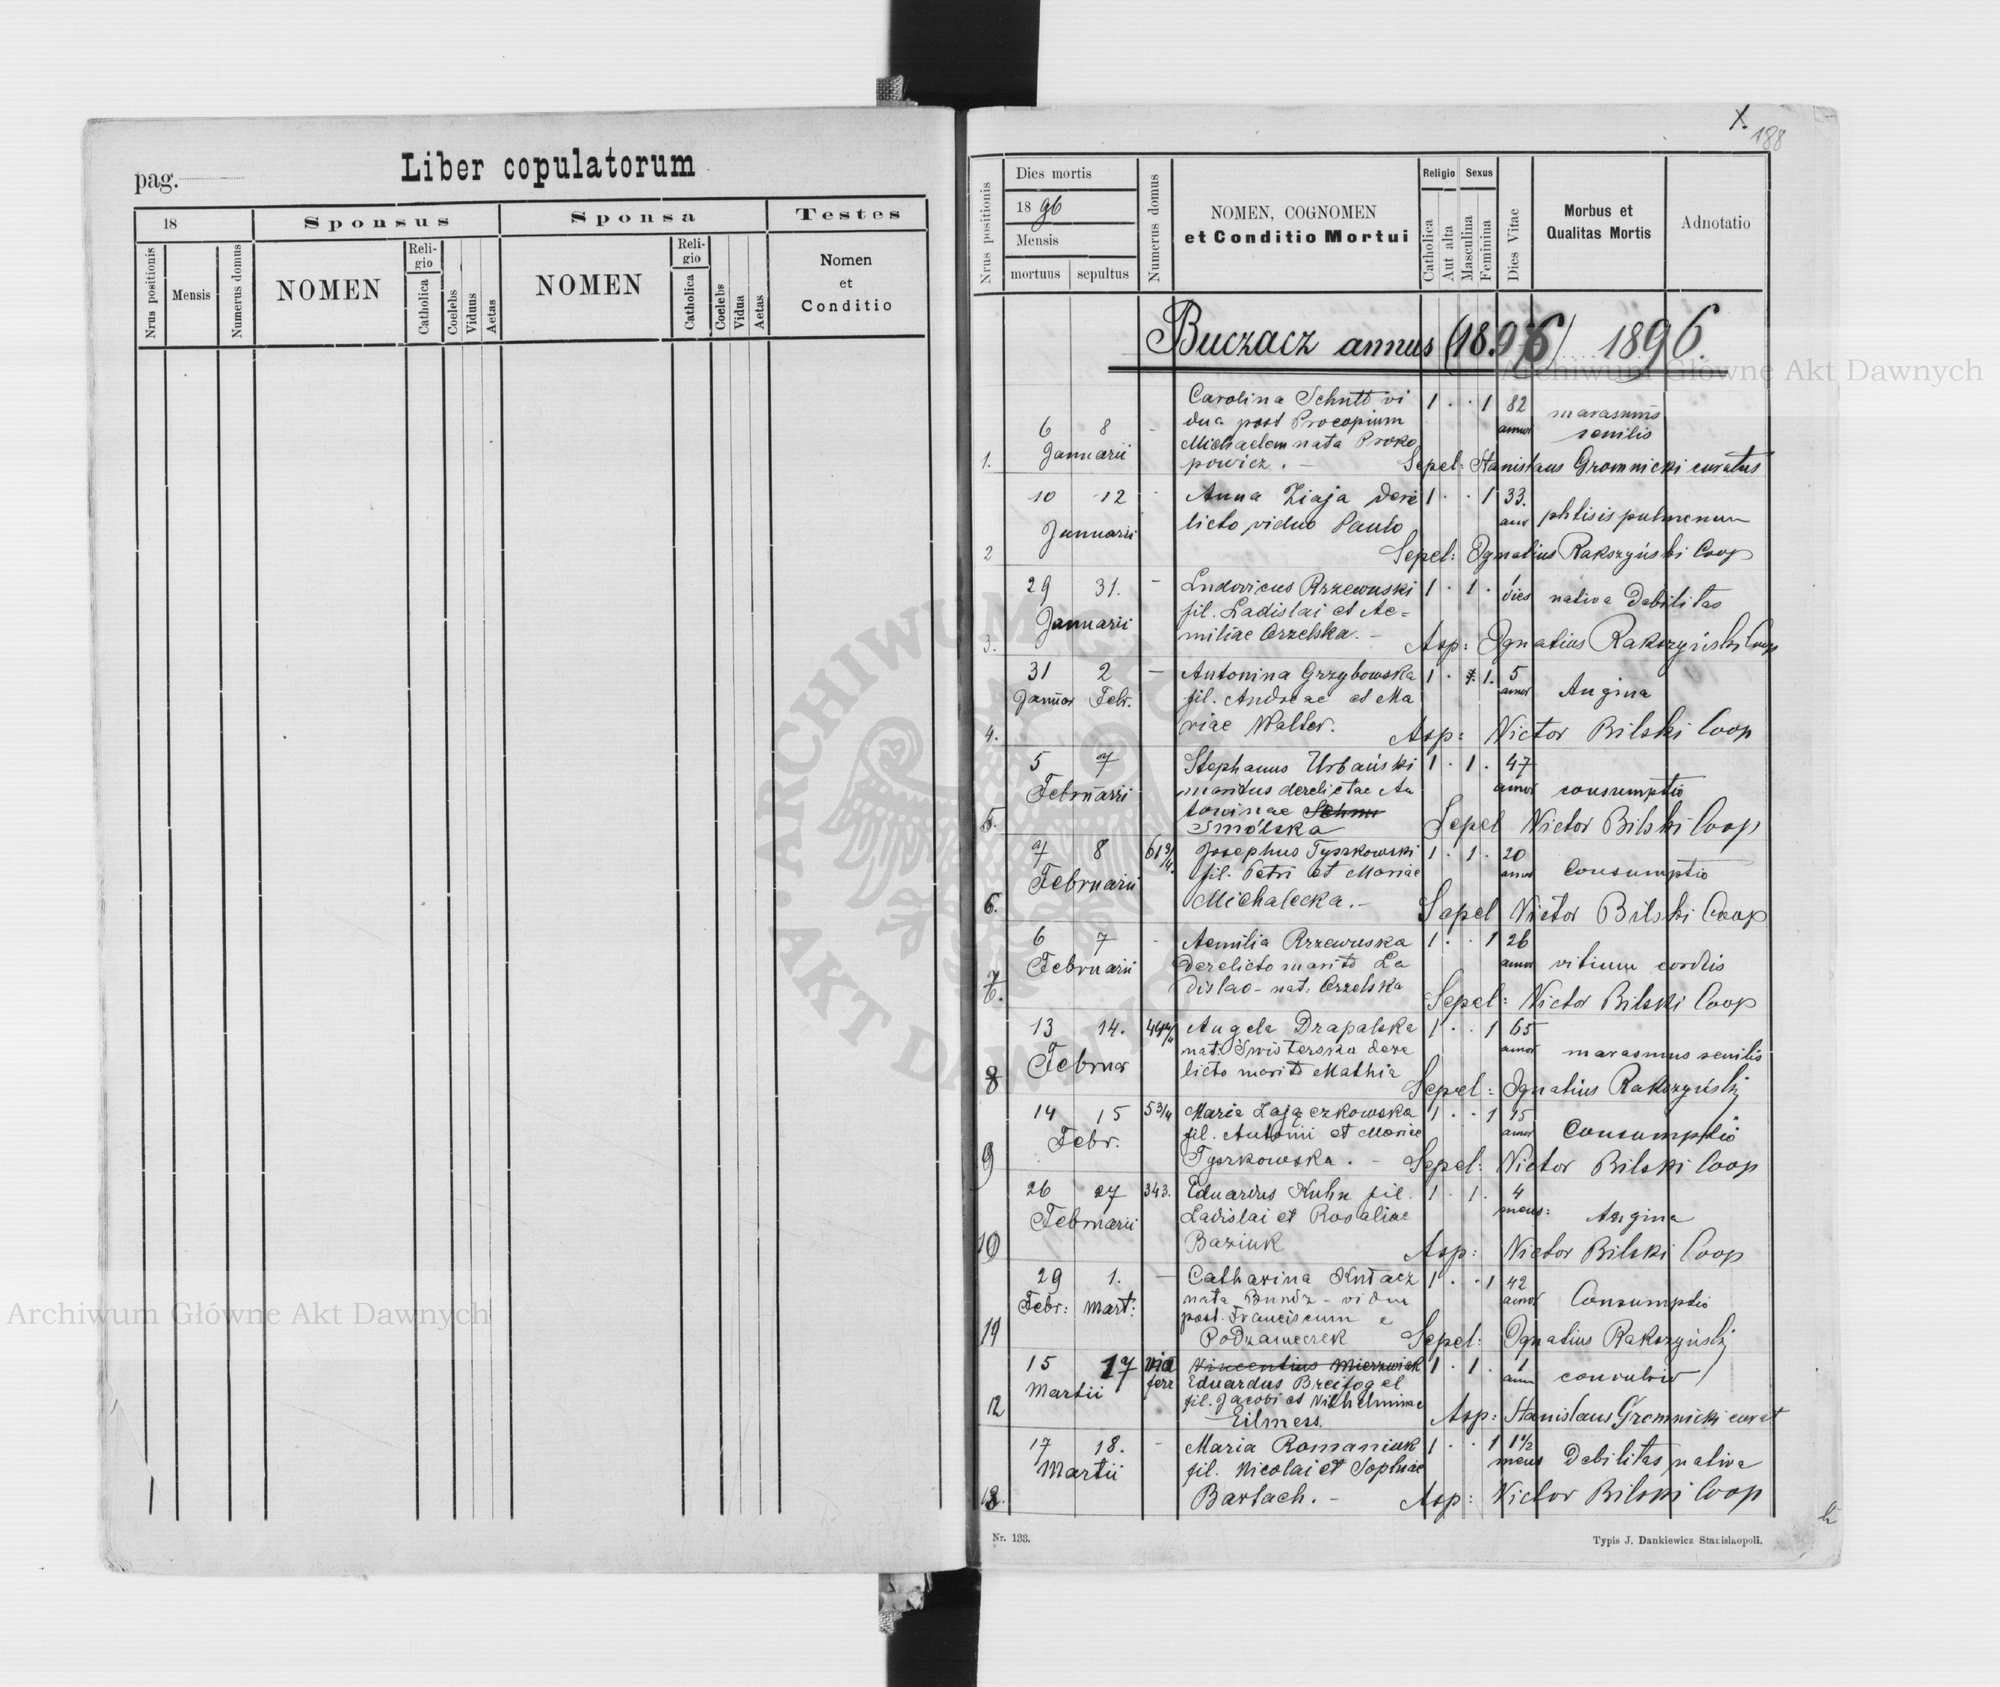 pag.
Liber copulatorum
18
Sponsus
Sponsa
Testes
Nrus positionis
Mensis
Numerus domus
NOMEN
Reli-
gio
Catholica
Coelebs
Viduus
Aetas
NOMEN
Reli-
gio
Catholica
Coelebs
Vidua
Aetas
Nomen
et
Conditio
X.
188
Nrus positionis
Dies mortis
1896
Mensis
mortuus
sepultus
Numerus domus
NOMEN, COGNOMEN
et Conditio Mortui
Religio
Catholica
Aut alta
Sexus
Masculina
Feminina
Dies Vitae
Morbus et
Qualitas Mortis
Adnotatio
Buczacz annus (1896) 1896.
Carolina Schutt vi 1 . . 1 82 marasmus
6 8 - dua post Procopium annor senilis
Januarii Michaelem nata Proko
1. powicz. - Sepel: Stanislaus Gromnicki curatus
10 12 - Anna Ziaja dere 1 . . 1 33.
Januarii licto viduo Paulo ann phtisis pulmonum
2 Sepel: Ignatius Rakszyński Coop
29 31. - Ludovicus Rzewuski 1 . 1 . 1 dies nativa debilitas
Januarii fil. Ladislai et Ae-
3. miliae Orzelska. - Asp: Ignatius Rakszyński Coop
31 2 - Antonina Grzybowska 1 . 1. 5
Januar Febr. fil. Andreae et Ma annor Angina
4. riae Walter. Asp: Victor Bilski Coop
5 7 Stephanus Urbański 1 . 1 . 47
Februarii maritus derelictae An annor consumptio
5. toninae Schmu
Smólska Sepel Victor Bilski Coop
7 8 613/4. Josephus Tyszkowski 1 . 1 . 20
Februarii fil. Petri et Mariae annor Consumptio
6. Michalecka. - Sepel Victor Bilski Coop
6 7 - Aemilia Rzewuska 1 . . 1 26
Februarii derelicto marito La annor vitium cordis
7. dislao - nat. Orzelska Sepel: Victor Bilski Coop
13 14. Angela Drapalska 1 . . 1 65
Februar nat. Świsterska dere annor marasmus senilis
8 licto marito Mathia Sepel: Ignatius Rakszyński
14 15 53/4 Maria Zajączkowska 1 . . 1 15
Febr. fil. Antonii et Mariae annor Consumptio
9 Tyszkowska. - Sepel: Victor Bilski Coop
26 27 343. Eduardus Kuhn fil. 1 . 1 . 4
Februarii Ladislai et Rosaliae mens: Angina
10 Baziuk Asp: Victor Bilski Coop
29 1. - Catharina 1 . . 1 42
Febr: Mart: nata Bundz - vidua annor Consumptio
post Franciscum e
11 Podzameczek Sepel: Ignatius Rakszyński
15 17 via Vincentius Mierzwiak 1 . 1 . 1
Martii ferr Eduardus Breitogel ann convulsio
fil. Jacobi et Vilhelminae
12 Eilmess. Asp: Stanislaus Gromnicki curat
17 18. - Maria Romaniuk 1 . . 1 1 1/2
Martii fil. Nicolai et Sophiae mens Debilitas nativa
13. Bartach. - Asp: Victor Bilski Coop
Nr. 133.
Typis J. Dankiewicz Stanislaopoli.
Archiwum Główne Akt Dawnych
Archiwum Główne Akt Dawnych
ARCHIWUM GŁÓWNE AKT DAWNYCH